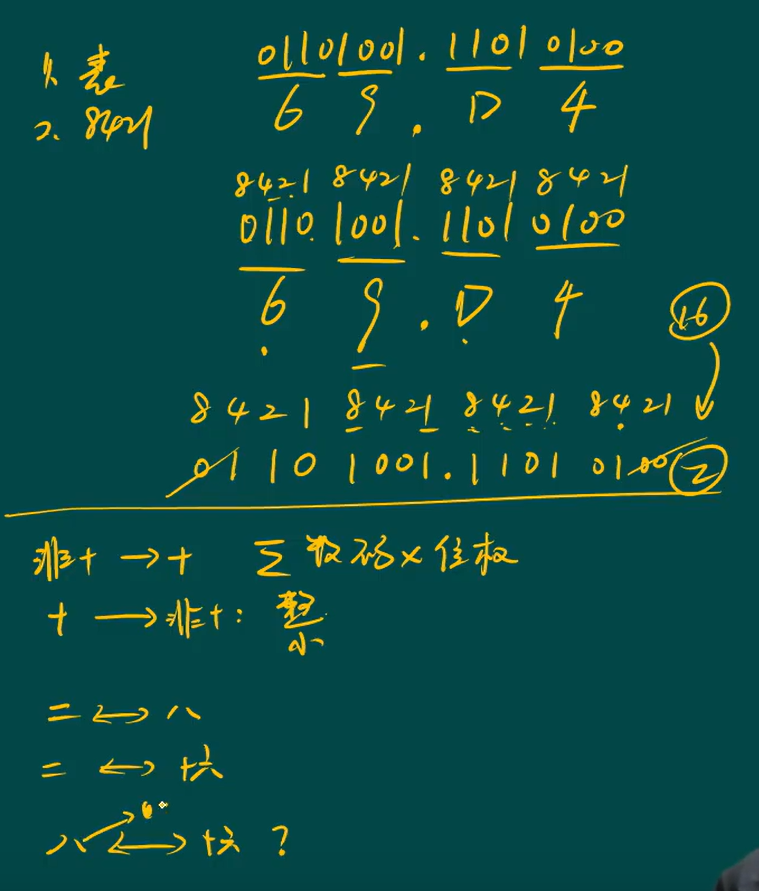 1. 表
2. 8421
01101001.1101 0100
6 9 . D 4
8421 8421 8421 8421
0110 1001.1101 0100
6 9 . D 4
16
8421 8421 8421 8421
0110 1001.1101 0100 2
非十→十 Σ数码×位权
十→非十: 整
小
二↔八
二↔十六
八↔十六?